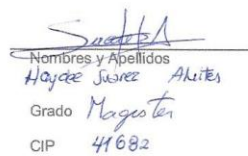 Nombres y Apellidos
Haydeé Suarez
Grado Magister
CIP 41682